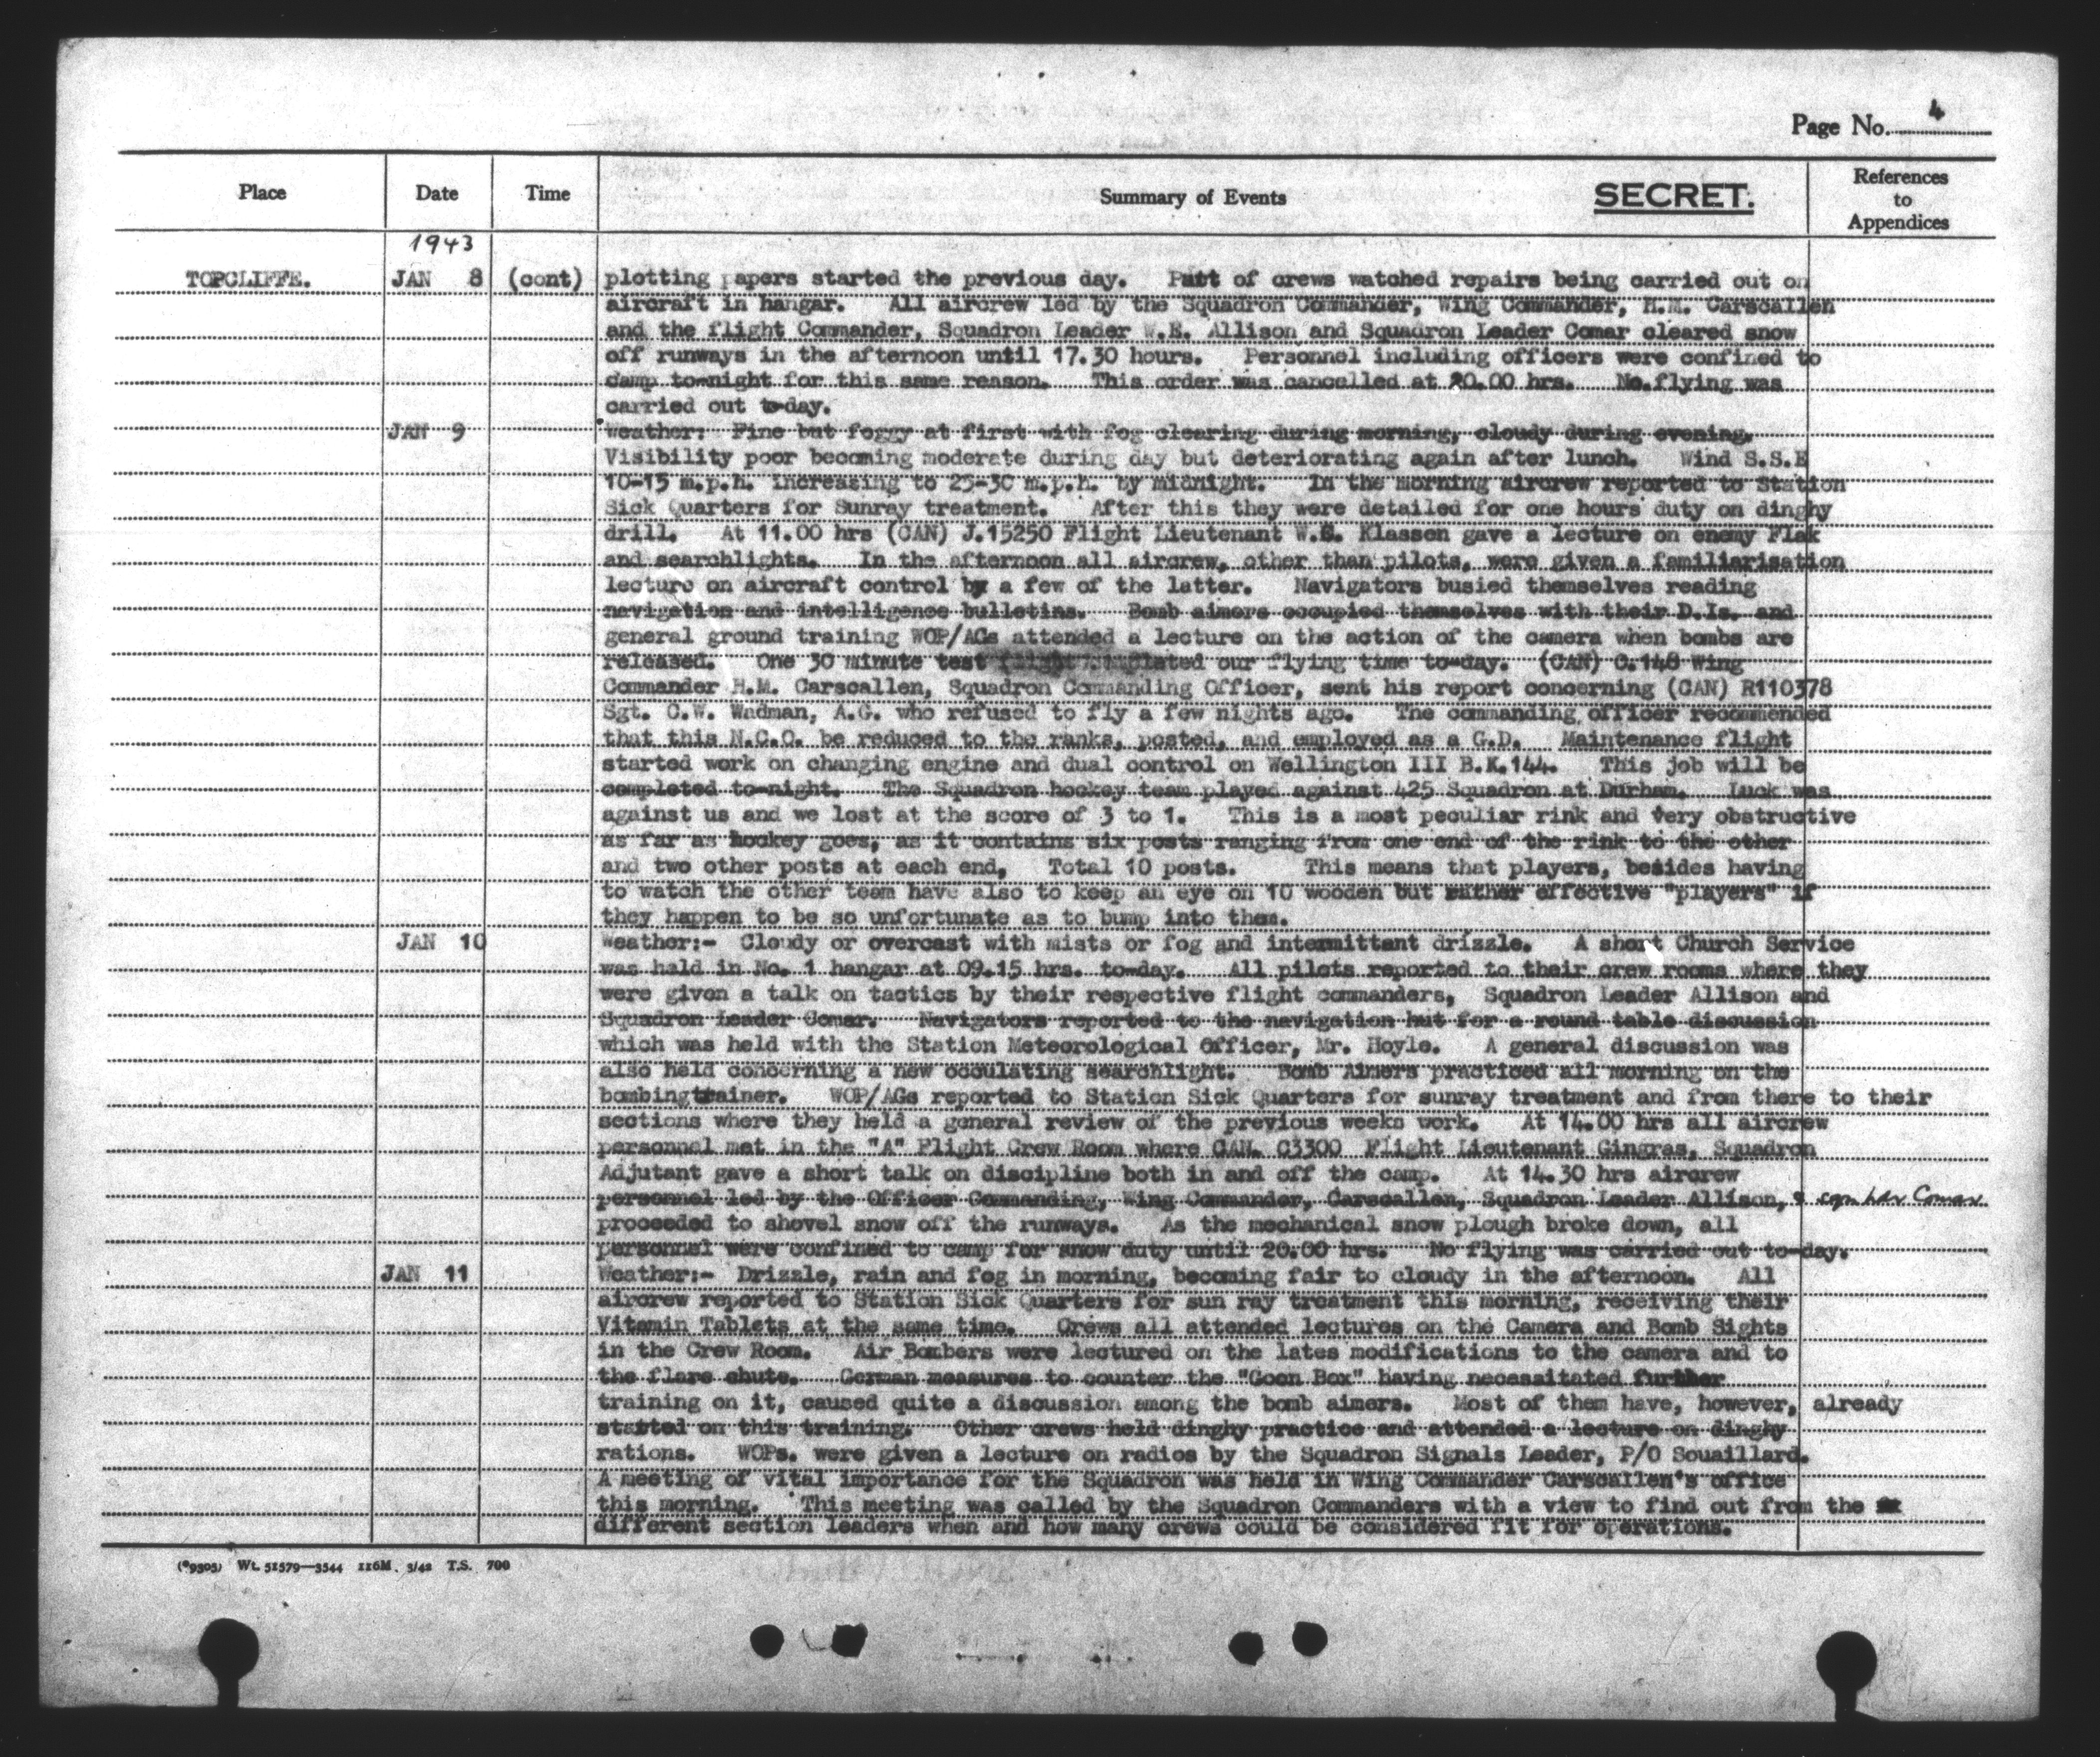 Page No. 4
Place Date Time Summary of Events SECRET. References to Appendices
1943
TOPCLIFFE. JAN 8 (cont) plotting papers started the previous day. Part of crews watched repairs being carried out on
aircraft in hangar. All aircrew led by the Squadron Commander, Wing Commander, H.M. Carscallen
and the flight Commander, Squadron Leader W.E. Allison and Squadron Leader Comar cleared snow
off runways in the afternoon until 17.30 hours. Personnel including officers were confined to
camp to-night for this same reason. This order was cancelled at 20.00 hrs. No flying was
carried out to-day.
JAN 9 Weather: Fine but foggy at first with fog clearing during morning, cloudy during evening.
Visibility poor becoming moderate during day but deteriorating again after lunch. Wind S.S.E
10-15 m.p.h. increasing to 25-30 m.p.h. by midnight. In the morning aircrew reported to Station
Sick Quarters for Sunray treatment. After this they were detailed for one hours duty on dinghy
drill. At 11.00 hrs (CAN) J.15250 Flight Lieutenant W.S. Klassen gave a lecture on enemy Flak
and searchlights. In the afternoon all aircrew, other than pilots, were given a familiarisation
lecture on aircraft control by a few of the latter. Navigators busied themselves reading
navigation and intelligence bulletins. Bomb aimers occupied themselves with their D.Is. and
general ground training WOP/AGs attended a lecture on the action of the camera when bombs are
released. One 30 minute test flight completed our flying time to-day. (CAN) C.148 Wing
Commander H.M. Carscallen, Squadron Commanding Officer, sent his report concerning (CAN) R110378
Sgt. C.W. Wadman, A.G. who refused to fly a few nights ago. The commanding officer recommended
that this N.C.O. be reduced to the ranks, posted, and employed as a G.D. Maintenance flight
started work on changing engine and dual control on Wellington III B.K.144. This job will be
completed to-night. The Squadron hockey team played against 425 Squadron at Durham. Luck was
against us and we lost at the score of 3 to 1. This is a most peculiar rink and very obstructive
as far as hockey goes, as it contains six posts ranging from one end of the rink to the other
and two other posts at each end, Total 10 posts. This means that players, besides having
to watch the other team have also to keep an eye on 10 wooden but rather effective "players" if
they happen to be so unfortunate as to bump into them.
JAN 10 Weather:- Cloudy or overcast with mists or fog and intermittant drizzle. A short Church Service
was held in No. 1 hangar at 09.15 hrs. to-day. All pilots reported to their crew rooms where they
were given a talk on tactics by their respective flight commanders, Squadron Leader Allison and
Squadron Leader Comar. Navigators reported to the navigation hut for a round table discussion
which was held with the Station Meteorological Officer, Mr. Hoyle. A general discussion was
also held concerning a new occulating searchlight. Bomb Aimers practiced all morning on the
bombingtrainer. WOP/AGs reported to Station Sick Quarters for sunray treatment and from there to their
sections where they held a general review of the previous weeks work. At 14.00 hrs all aircrew
personnel met in the "A" Flight Crew Room where CAN. C3300 Flight Lieutenant Gingras, Squadron
Adjutant gave a short talk on discipline both in and off the camp. At 14.30 hrs aircrew
personnel led by the Officer Commanding, Wing Commander, Carscallen, Squadron Leader Allison, & Sqn Ldr Comar
proceeded to shovel snow off the runways. As the mechanical snow plough broke down, all
personnel were confined to camp for snow duty until 20.00 hrs. No flying was carried out to-day.
JAN 11 Weather:- Drizzle, rain and fog in morning, becoming fair to cloudy in the afternoon. All
aircrew reported to Station Sick Quarters for sun ray treatment this morning, receiving their
Vitamin Tablets at the same time. Crews all attended lectures on the Camera and Bomb Sights
in the Crew Room. Air Bombers were lectured on the lates modifications to the camera and to
the flare chute. German measures to counter the "Goon Box" having necessitated further
training on it, caused quite a discussion among the bomb aimers. Most of them have, however, already
started on this training. Other crews held dinghy practice and attended a lecture on dinghy
rations. WOPs. were given a lecture on radios by the Squadron Signals Leader, P/O Souaillard.
A meeting of vital importance for the Squadron was held in Wing Commander Carscallen's office
this morning. This meeting was called by the Squadron Commanders with a view to find out from the
different section leaders when and how many crews could be considered fit for operations.
(*9305) Wt. 51579—3544 116M. 3/42 T.S. 700